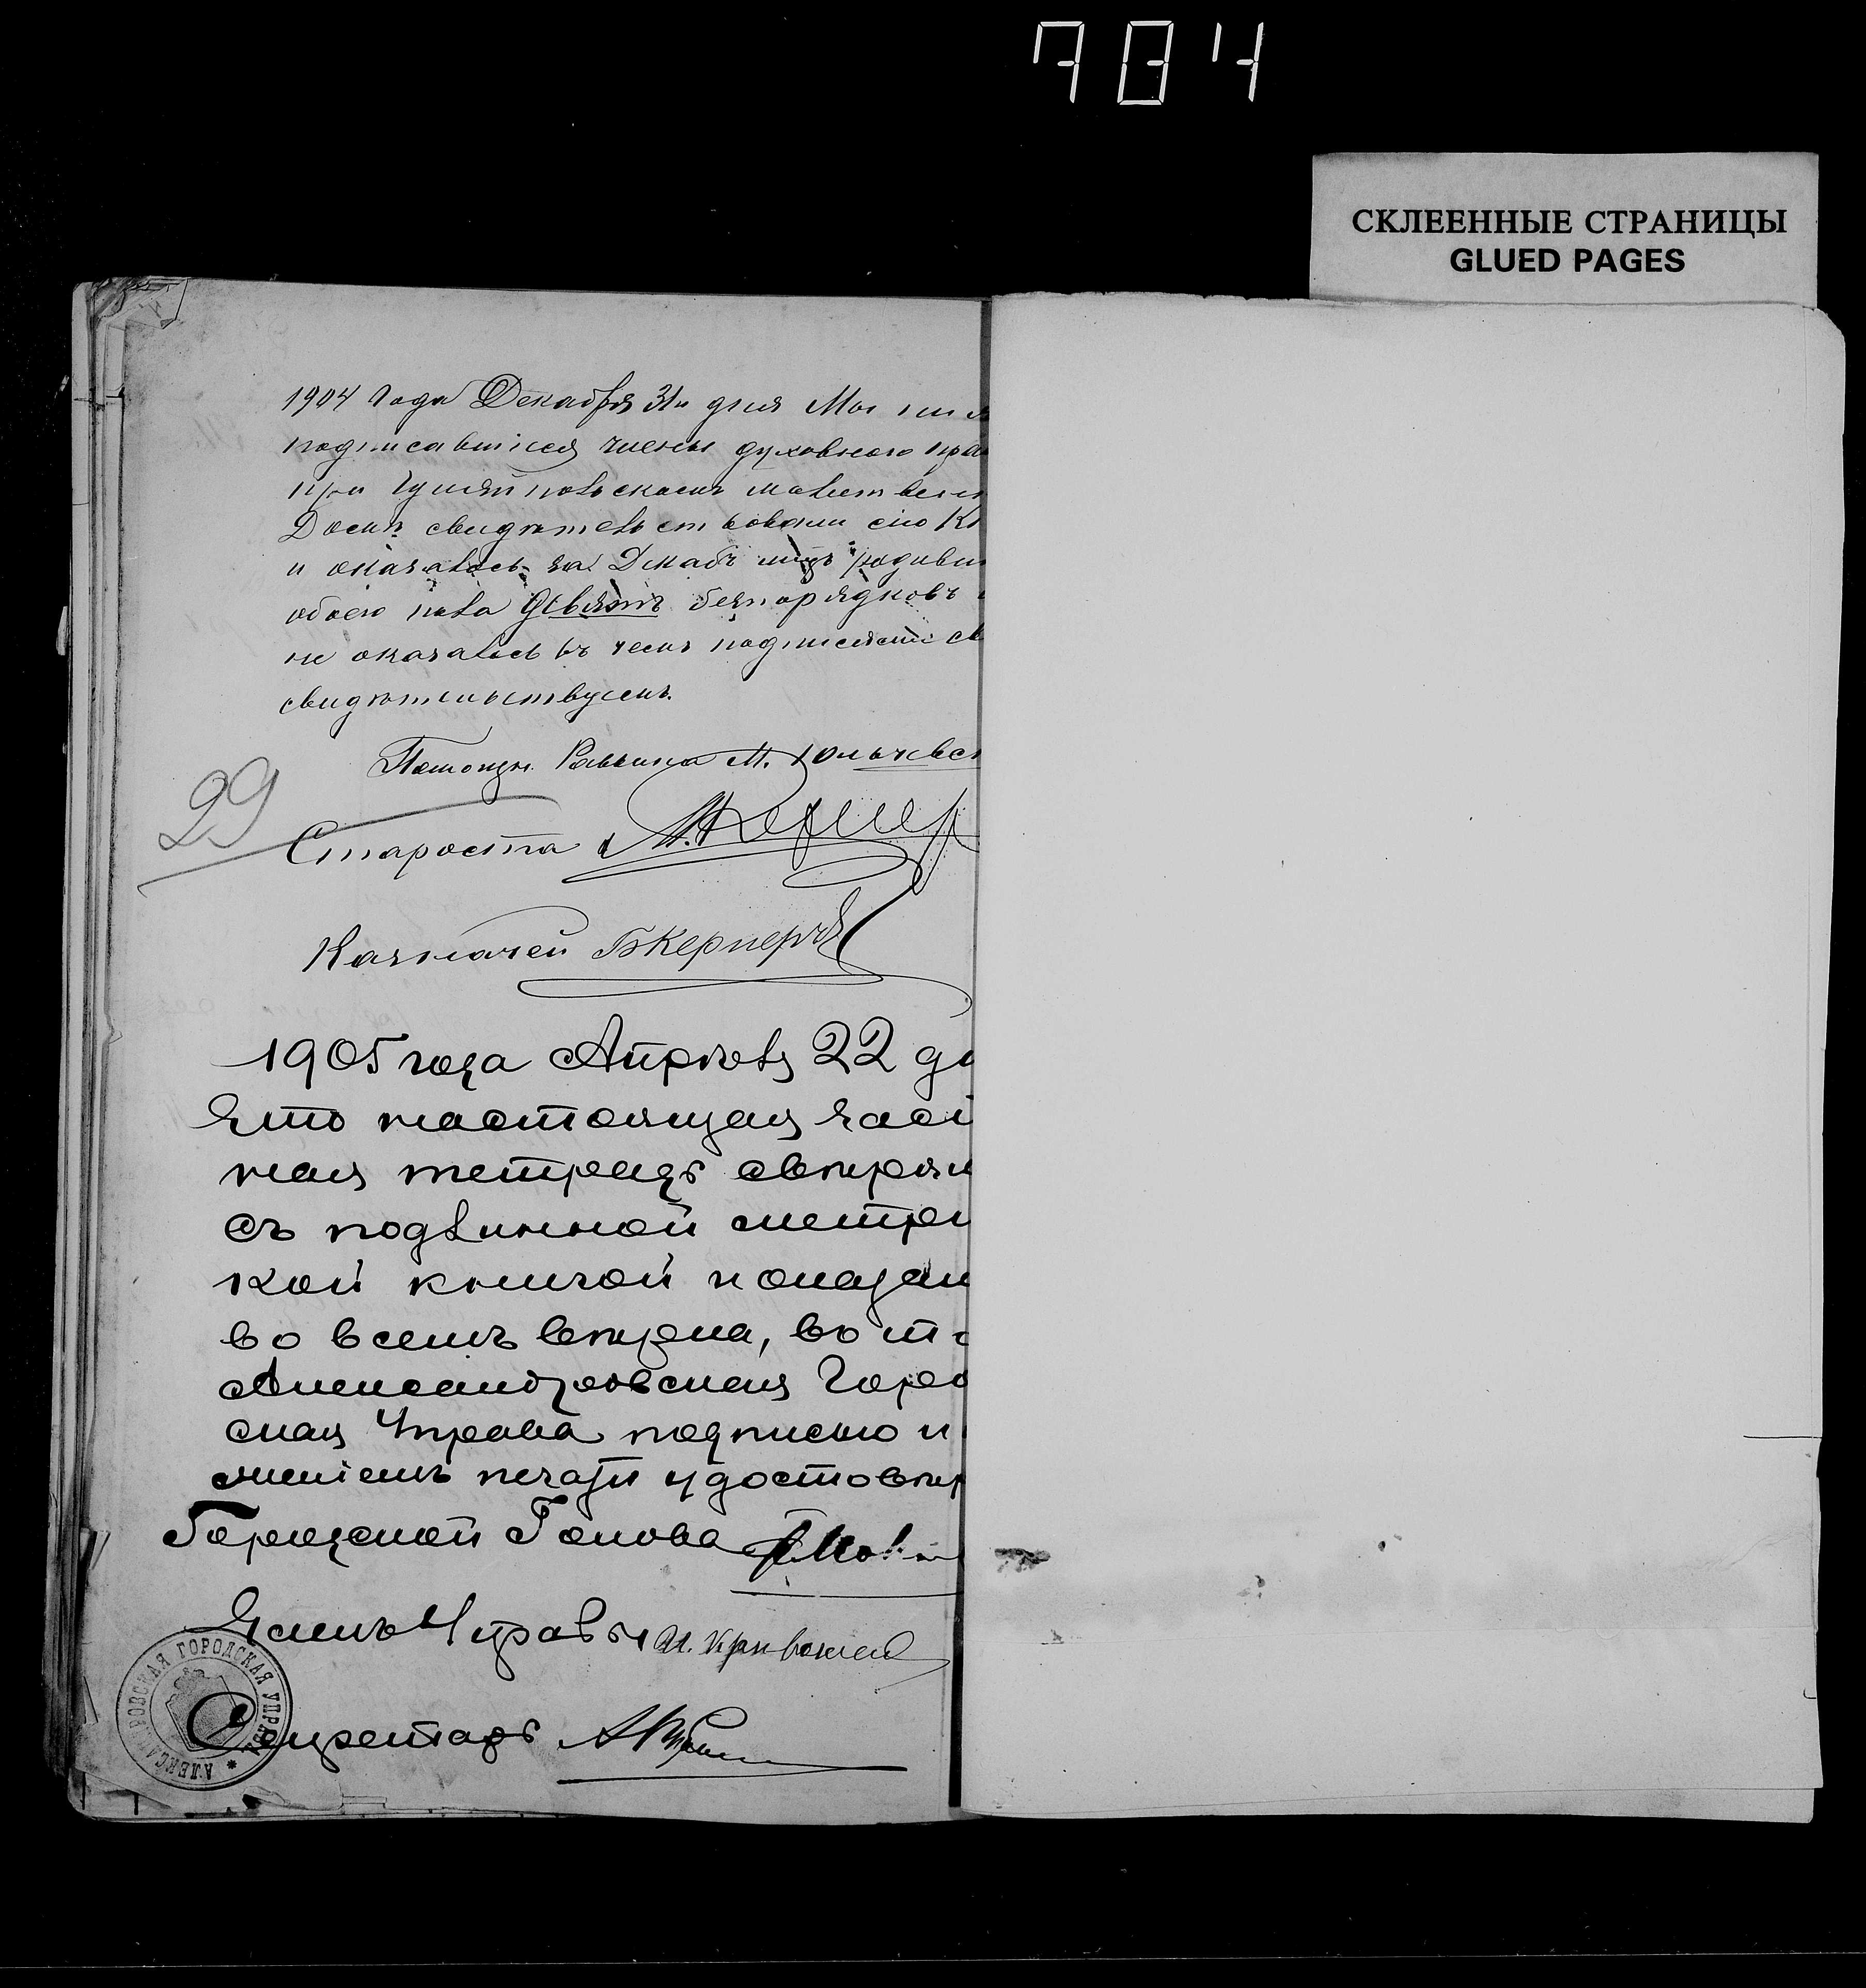 704
СКЛЕЕННЫЕ СТРАНИЦЫ
GLUED PAGES
1904 года Декабря 31го дня Мы ниж
подписавшиеся члены духовнаго пра
при Гуляйпольскомъ молитвен
Домѣ свидѣтельствовали сію Кн
и оказалось за Декабъ мцъ родивш
обоего пола девять безпорядковъ
не оказалось въ чемъ подписями св
свидѣтельствуемъ.
Помощн. Раввина М.
29
Староста М. Кернер
Казначей Б Кернеръ
1905 года Апрѣля 22 дн
Что настоящая част
ная тетрадь свѣрян
съ подлинной метри
кой книгой и оказан
во всемъ вѣрна, въ т
Александровская Горо
ская Управа подписью и
женіемъ печати удостовѣр
Городской Голова
Членъ Управы И.
Секретарь
АЛЕКСАНДРОВСКАЯ ГОРОДСКАЯ УПРАВА